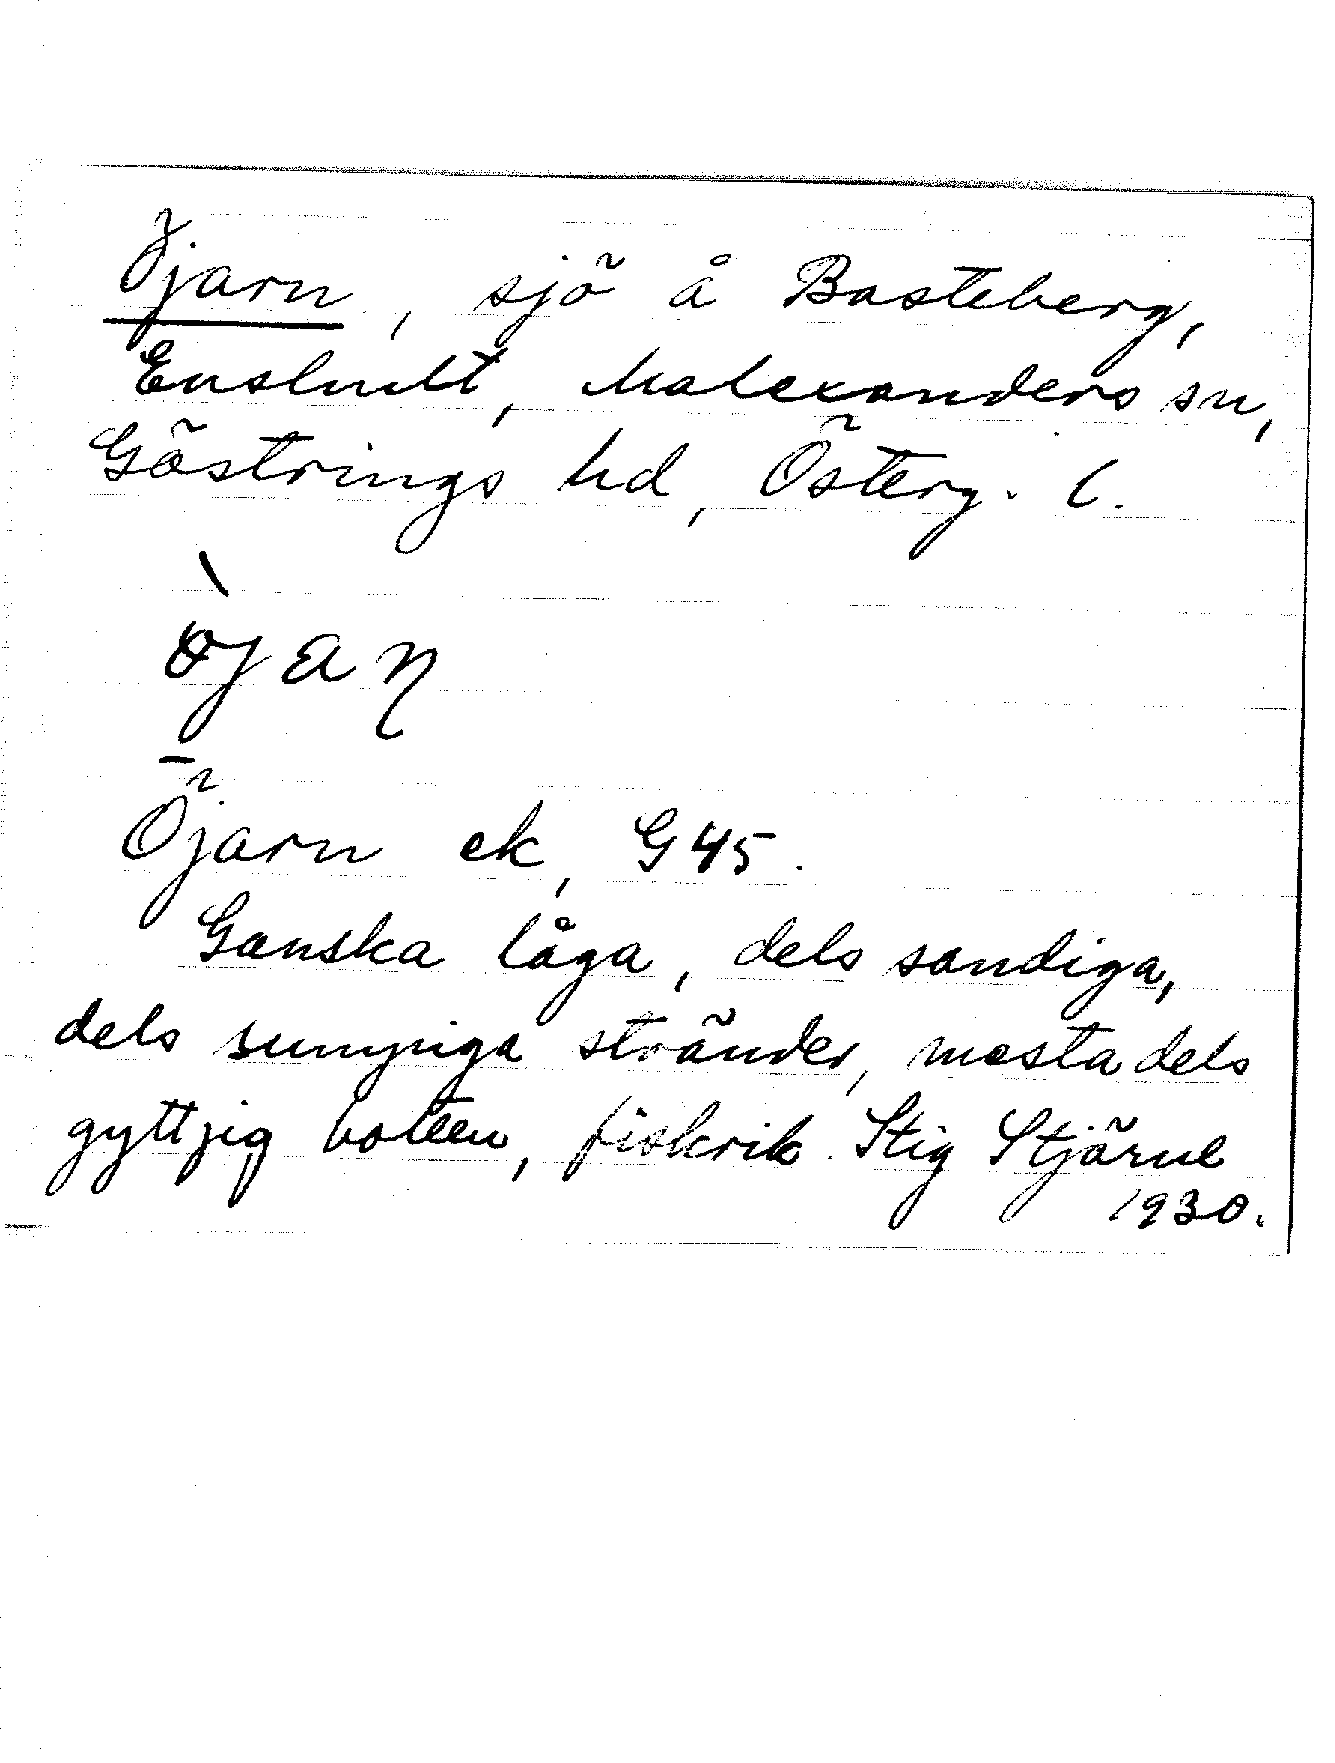 Öjarn, sjö å Basteberg,
Enshult, Malexanders sn,
Göstrings hd, Österg. l.
öjaɳ
Öjarn ek, G45.
Ganska låga, dels sandiga,
dels sumpiga stränder, mesta dels
gyttjig botten, fiskrik. Stig Stjärne
1930.